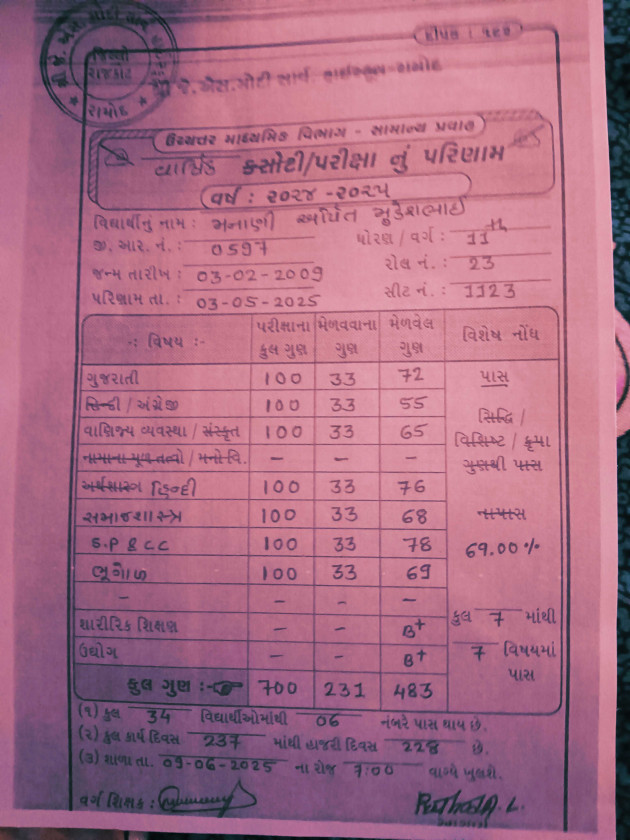 શ્રી જે. એસ. મોદી સાર્વ. હાઈસ્કૂલ-રામોદ
ઉચ્ચત્તર માધ્યમિક વિભાગ - સામાન્ય પ્રવાહ
વાર્ષિક કસોટી/પરીક્ષા નું પરિણામ
વર્ષ : ૨૦૨૪ -૨૦૨૫
વિદ્યાર્થીનું નામ : મનાણી અર્પિત મુકેશભાઈ
જી. આર. નં. : 0597 ધોરણ / વર્ગ : 11th
જન્મ તારીખ : 03-02-2009 રોલ નં. : 23
પરિણામ તા. : 03-05-2025 સીટ નં. : 1123
-: વિષય :- પરીક્ષાના કુલ ગુણ મેળવવાના ગુણ મેળવેલ ગુણ વિશેષ નોંધ
ગુજરાતી 100 33 72 પાસ
હિન્દી / અંગ્રેજી 100 33 55 સિદ્ધિ /
વાણિજ્ય વ્યવસ્થા / સંસ્કૃત 100 33 65 વિસિષ્ટ / કૃપા
નામાના મૂળ તત્વો / મનો વિ. - - - ગુણથી પાસ
અર્થશાસ્ત્ર હિન્દી 100 33 76
સમાજશાસ્ત્ર 100 33 68 નાપાસ
S.P & C.C 100 33 78 69.00 %
ભૂગોળ 100 33 69
- - - -
શારીરિક શિક્ષણ - - B+ કુલ 7 માંથી
ઉદ્યોગ - - B+ 7 વિષયમાં
કુલ ગુણ :- 700 231 483 પાસ
(૧) કુલ 34 વિદ્યાર્થીઓમાંથી 06 નંબરે પાસ થાય છે.
(૨) કુલ કાર્ય દિવસ 237 માંથી હાજરી દિવસ 228 છે.
(૩) શાળા તા. 09-06-2025 ના રોજ 7:00 વાગ્યે ખુલશે.
વર્ગ શિક્ષક :